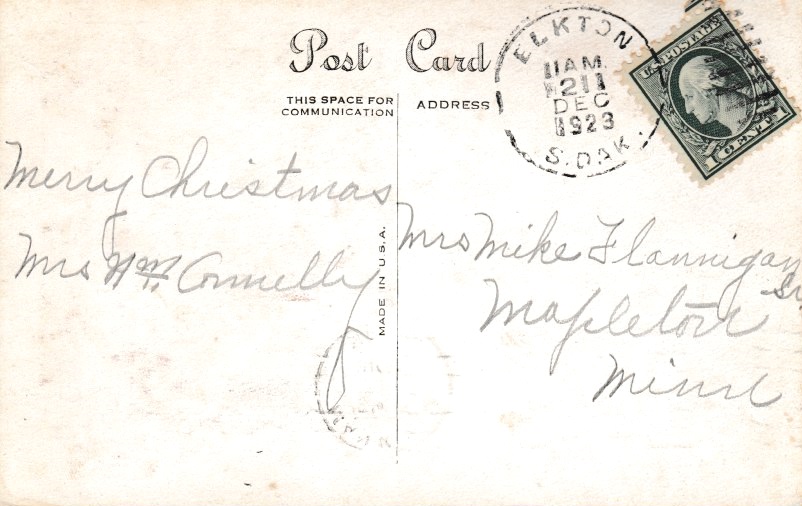 Post Card
THIS SPACE FOR
COMMUNICATION
ADDRESS
ELKTON
11 AM
21
DEC
1923
S. DAK.
U.S. POSTAGE
1 CENT 1
Merry Christmas
Mrs Wm. Connelly
MADE IN U.S.A.
Mrs Mike Flannigan
Sr.
Mapleton
Minn